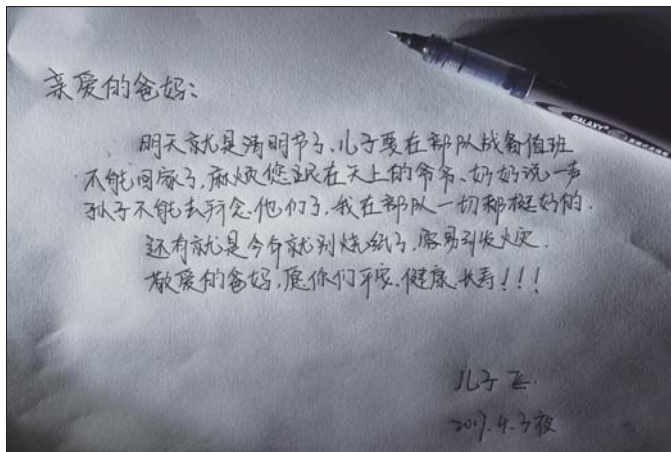 亲爱的爸妈：
明天就是清明节了，儿子要在部队战备值班
不能回家了，麻烦您跟在天上的爷爷、奶奶说一声
孙子不能去祭念他们了，我在部队一切都挺好的.
还有就是今年就别烧纸了，容易引发火灾.
敬爱的爸妈，愿你们平安.健康.长寿！！！
儿子 飞.
2017.4.3夜
GALAXY